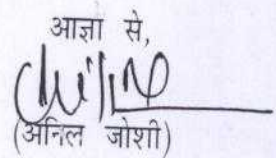 आज्ञा से,
(अनिल जोशी)